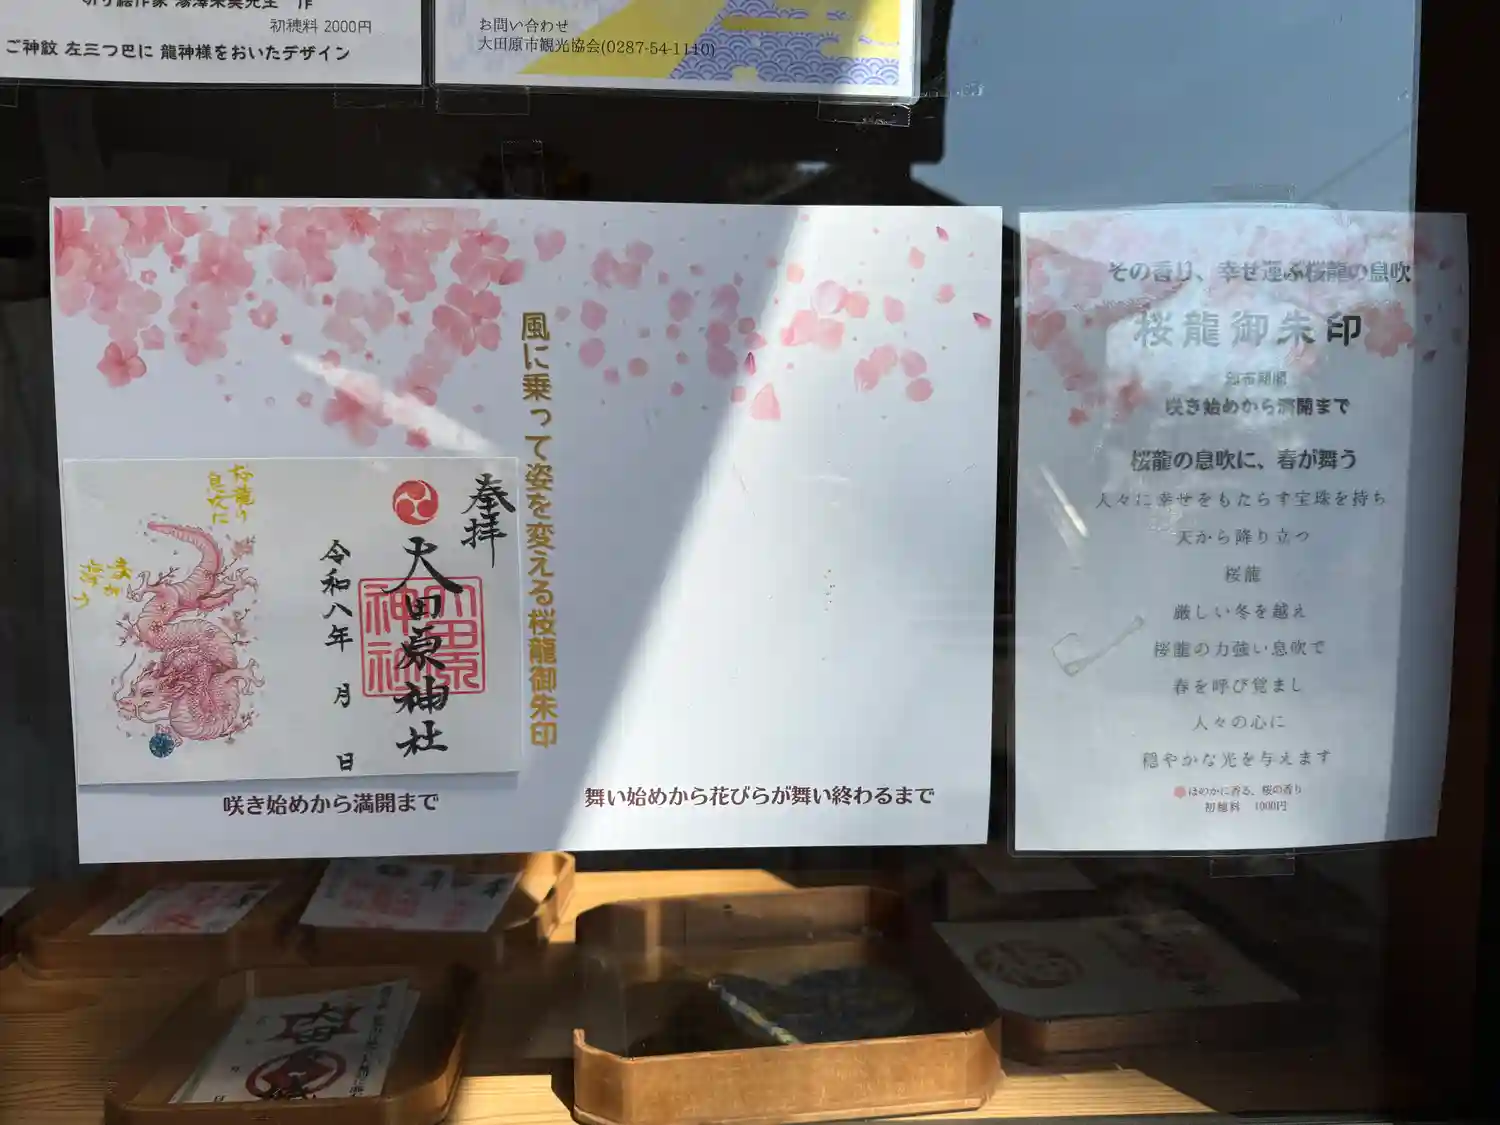 切り絵作家 湯澤朱美先生 作
初穂料 2000円
ご神紋 左三つ巴に 龍神様をおいたデザイン
お問い合わせ
大田原市観光協会(0287-54-1110)
風に乗って姿を変える桜龍御朱印
奉拝
大田原神社
令和八年 月 日
桜龍の
息吹に
春が
舞う
咲き始めから満開まで
舞い始めから花びらが舞い終わるまで
その香り、幸せ運ぶ桜龍の息吹
桜龍御朱印
頒布期間
咲き始めから満開まで
桜龍の息吹に、春が舞う
人々に幸せをもたらす宝珠を持ち
天から降り立つ
桜龍
厳しい冬を越え
桜龍の力強い息吹で
春を呼び覚まし
人々の心に
穏やかな光を与えます
ほのかに香る、桜の香り
初穂料 1000円